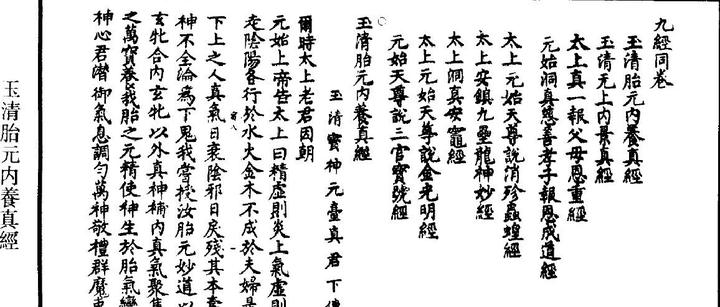 九經同卷
玉清胎元內養真經
玉清元上內景真經
太上真一報父母恩重經
元始洞真慈善孝子報恩成道經
太上元始天尊說消殄蟲蝗經
太上安鎮九壘龍神妙經
太上洞真安竈經
太上元始天尊說金光明經
元始天尊說三官寶號經
玉清胎元內養真經
玉清寶神元臺真君下傳
爾時太上老君因朝
元始上帝告太上曰精虛則炎上氣虛則
走陰陽各行於水火金木不成於夫婦是
下上之人真氣日衰陰邪日戾殘其本
神不全淪為下鬼我當授汝胎元妙道以
玄牝合內玄牝以外真神補內真氣聚集
之萬寶養我胎之元精使神生於胎氣
神心君潛御氣息調勻萬神敬禮群魔束
玉清胎元內養真經